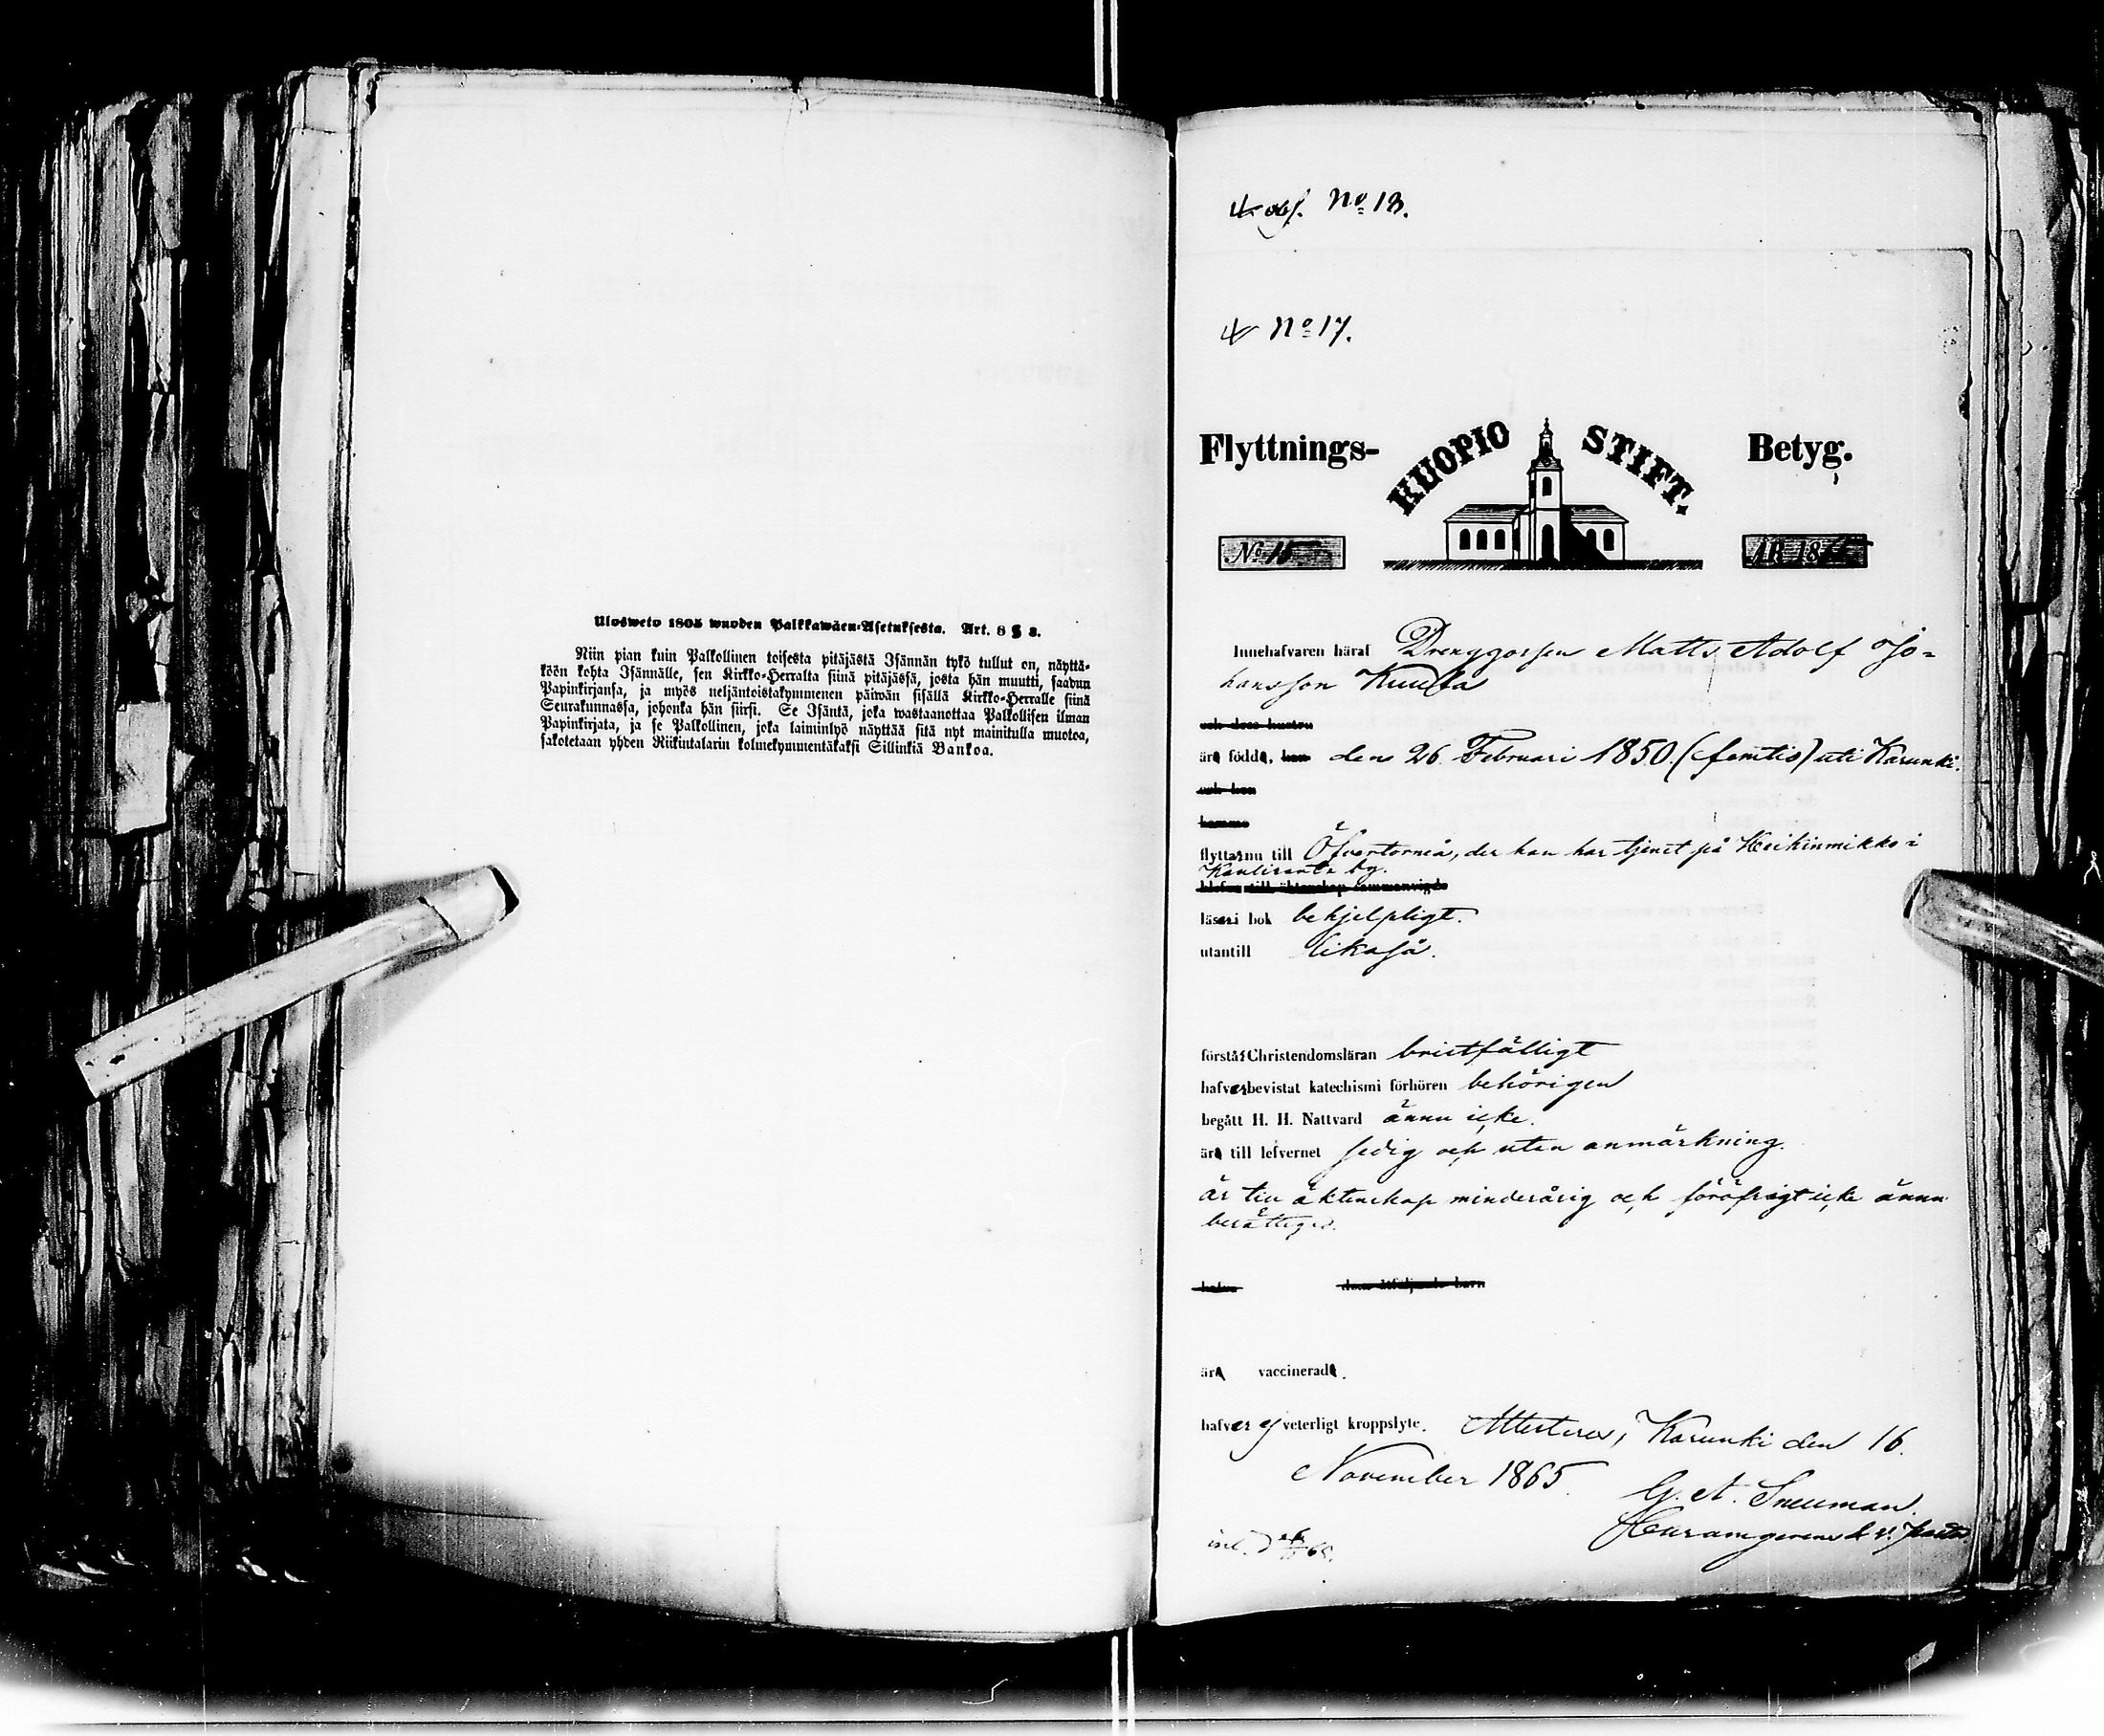 Ulosweto 1805 wuoden Palkkawäen-Asetuksesta. Art. 8 § 3.
Niin pian kuin Palkollinen toisesta pitäjästä Isännän tykö tullut on, näyttä-
köön kohta Isännälle, sen Kirkko-Herralta siinä pitäjässä, josta hän muutti, saadun
Papinkirjansa, ja myös neljäntoistakymmenen päiwän sisällä Kirkko-Herralle siinä
Seurakunnassa, johonka hän siirsi. Se Isäntä, joka wastaanottaa Palkollisen ilman
Papinkirjata, ja se Palkollinen, joka laiminlyö näyttää sitä nyt mainitulla muotoa,
sakotetaan yhden Riikintalarin kolmekymmentäkaksi Sillinkiä Bankoa.
No 13.
No 17.
Flyttnings- KUOPIO STIFT. Betyg.
No 15 ÅR 18
Innehafvaren häraf Drenggossen Matts Adolf Jo-
hansson
och dess hustru
är född, han den 26. Februari 1850. (femtio) uti Karunki.
och hon
hemma
flyttar nu till Öfvertorneå, der han har tjenst på Heikinmikko i
Kaulinranta by.
blefvo till äktenskap sammanvigde
läser i bok behjelpligt.
utantill likaså.
förstår Christendomsläran bristfälligt
hafver bevistat katechismi förhören behörigen
begått H. H. Nattvard ännu icke.
är till lefvernet sedig och utan anmärkning.
är till äktenskap minderårig och föröfrigt icke ännu
berättigad.
hafva dem åtföljande barn
är vaccinerad.
hafver ej veterligt kroppslyte. Attesteras, Karunki den 16.
November 1865.
G. A. Sneuman.
inl. d 65.